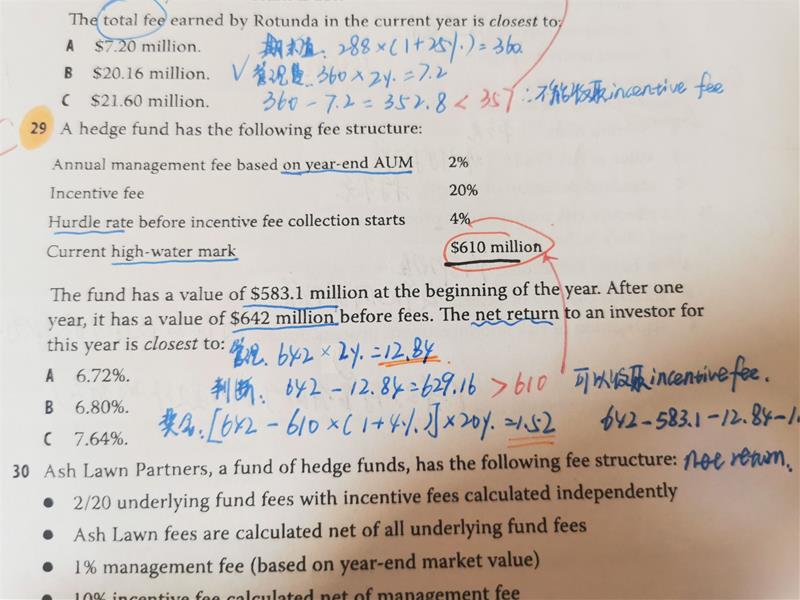 The total fee earned by Rotunda in the current year is closest to:
A $7.20 million. 期末值: 288×(1+25%)=360
B $20.16 million. √管理费: 360×2%=7.2
C $21.60 million. 360-7.2=352.8<357 ∴不能收取incentive fee
29 A hedge fund has the following fee structure:
Annual management fee based on year-end AUM 2%
Incentive fee 20%
Hurdle rate before incentive fee collection starts 4%
Current high-water mark $610 million
The fund has a value of $583.1 million at the beginning of the year. After one
year, it has a value of $642 million before fees. The net return to an investor for
this year is closest to: 管理: 642×2%=12.84
A 6.72%. 判断: 642-12.84=629.16>610 可以收取incentive fee.
B 6.80%. 奖金:[642-610×(1+4%)]×20%=1.52 642-583.1-12.84-1.
C 7.64%.
30 Ash Lawn Partners, a fund of hedge funds, has the following fee structure: net return.
• 2/20 underlying fund fees with incentive fees calculated independently
• Ash Lawn fees are calculated net of all underlying fund fees
• 1% management fee (based on year-end market value)
• 10% incentive fee calculated net of management fee